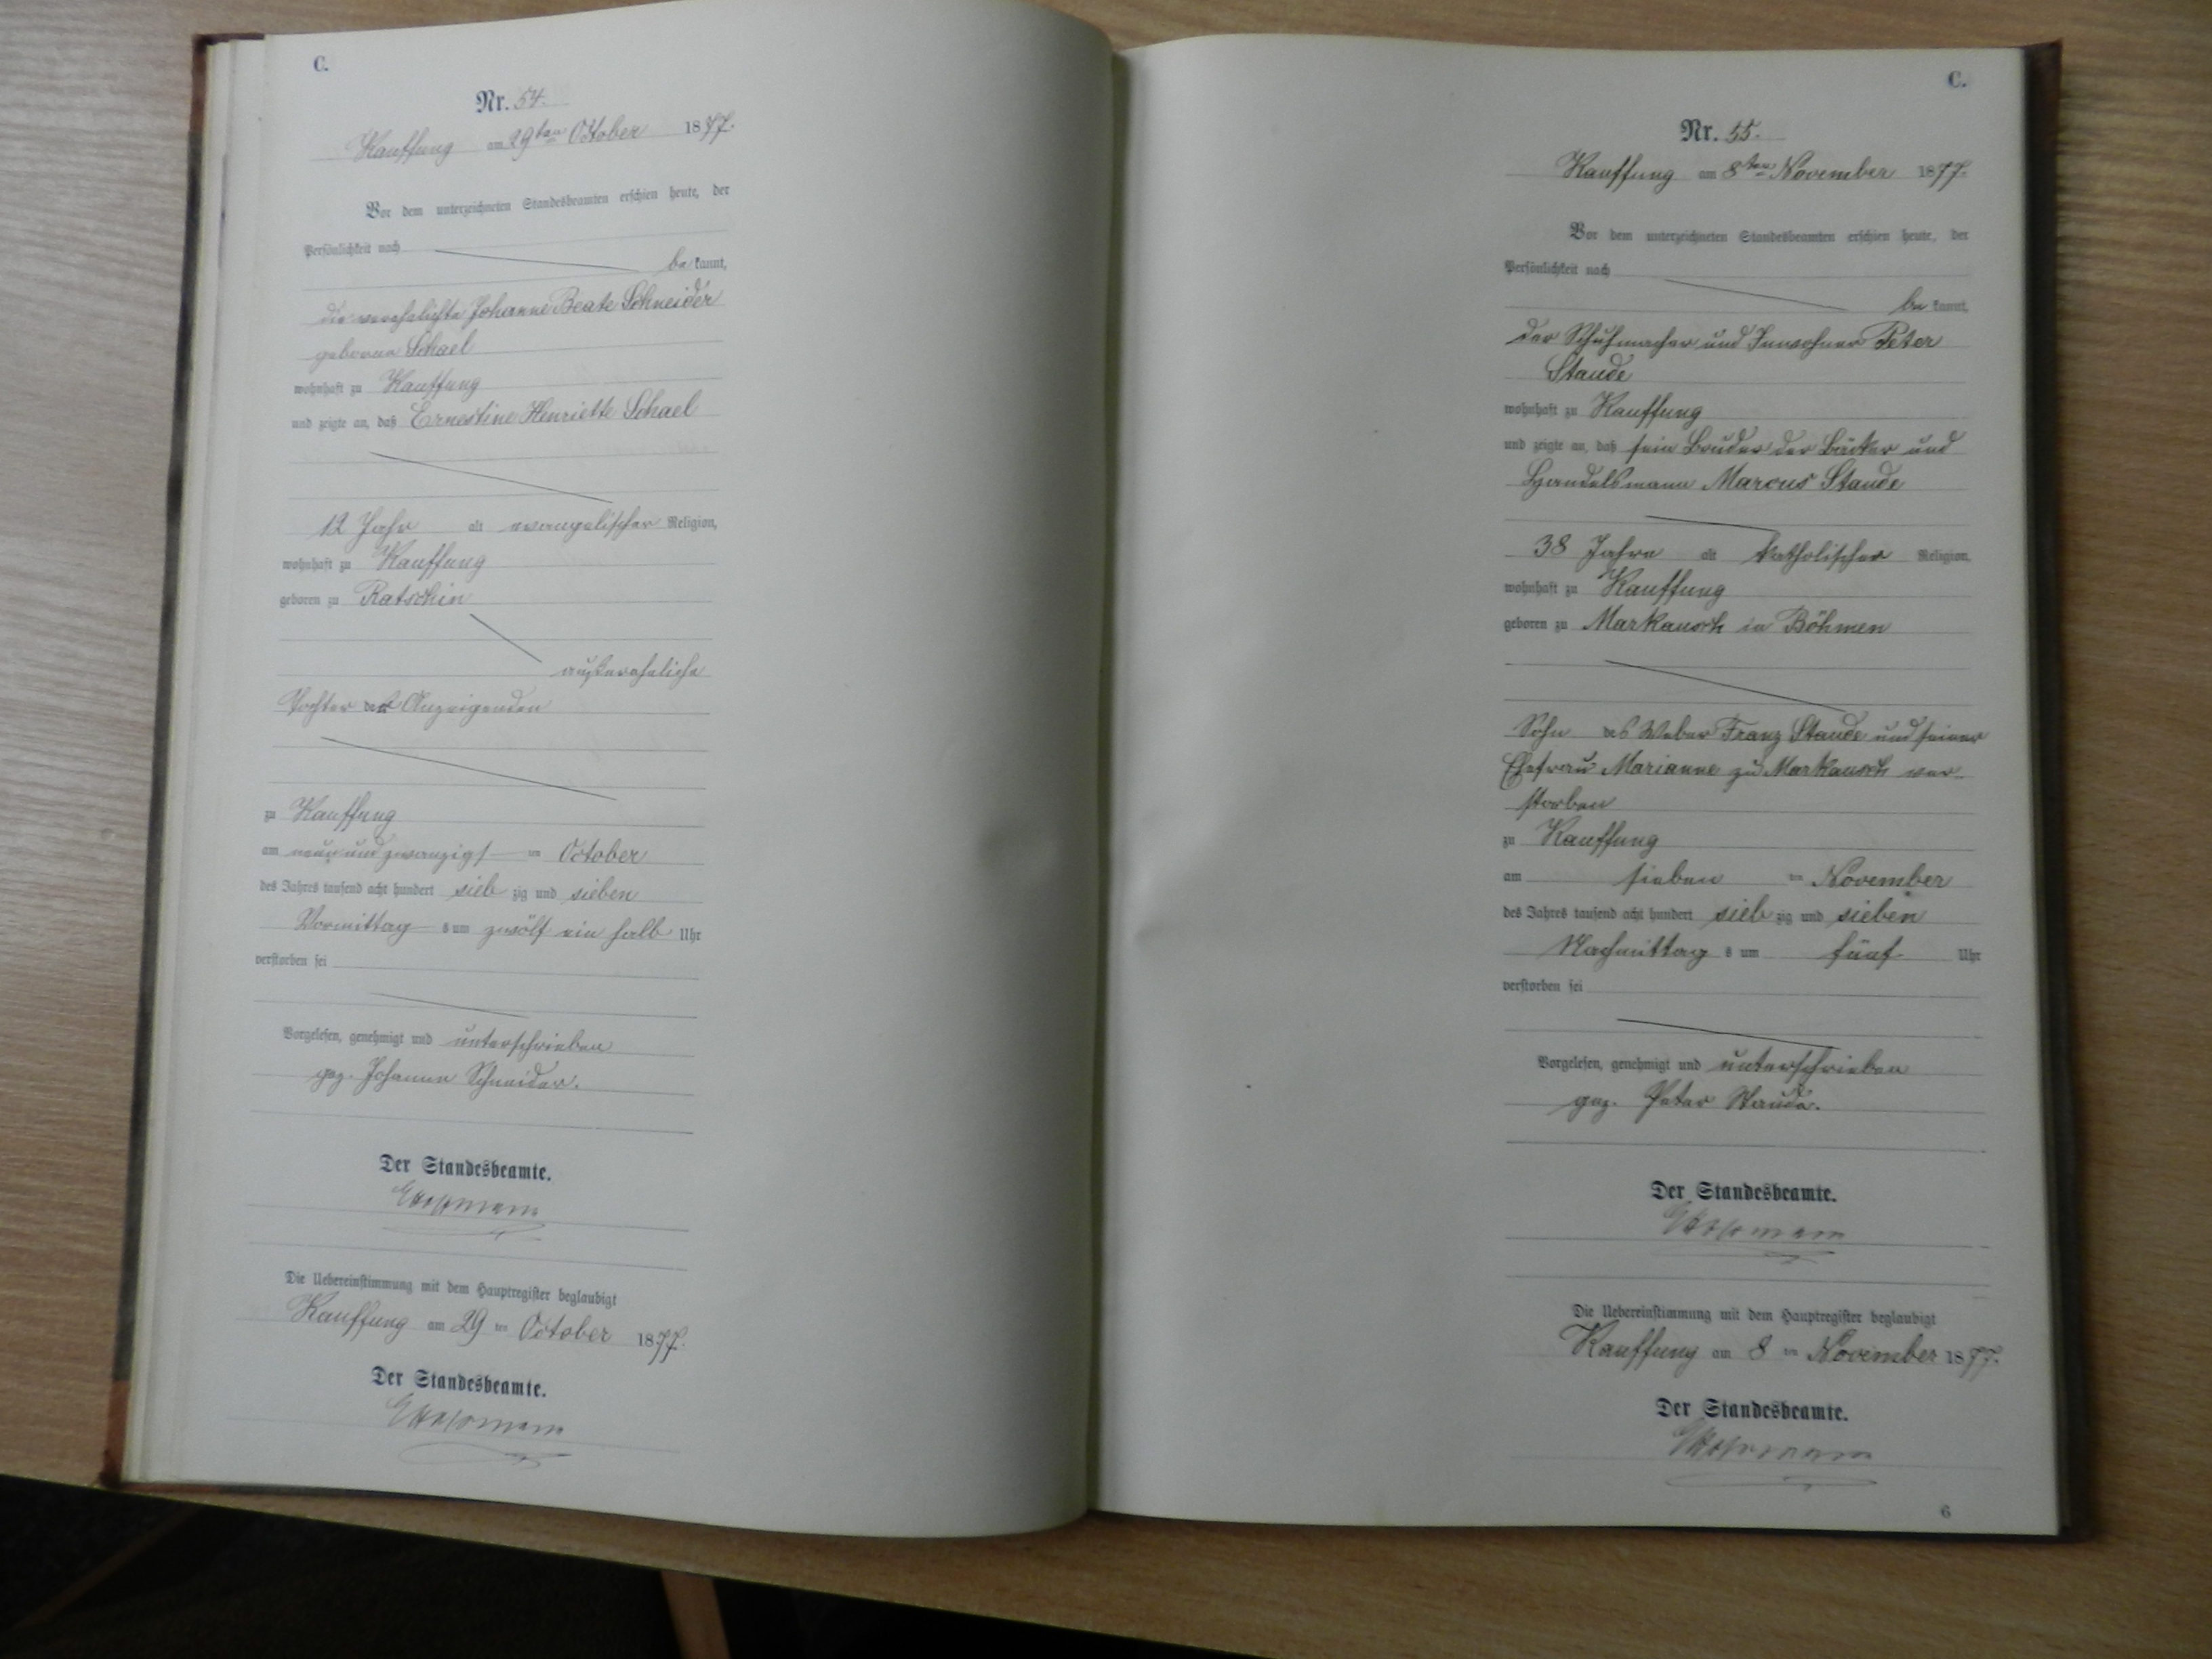 C.
Nr. 54.
Kauffung am 29ten October 1877.
Vor dem unterzeichneten Standesbeamten erschien heute, der
Persönlichkeit nach
be kannt,
die verehelichte Johanne Beate Schneider
geborne Schael
wohnhaft zu Kauffung
und zeigte an, daß Ernestine Henriette Schael
12 Jahr alt evangelischer Religion,
wohnhaft zu Kauffung
geboren zu Ratschin
außereheliche
Tochter der Anzeigenden
zu Kauffung
am neun und zwanzigst ten October
des Jahres tausend acht hundert sieb zig und sieben
Vormittag s um zwölf ein halb Uhr
verstorben sei
Vorgelesen, genehmigt und unterschrieben
gez. Johanne Schneider.
Der Standesbeamte.
Die Uebereinstimmung mit dem Hauptregister beglaubigt
Kauffung am 29 ten October 1877.
Der Standesbeamte.
C.
Nr. 55.
Kauffung am 8ten November 1877.
Vor dem unterzeichneten Standesbeamten erschien heute, der
Persönlichkeit nach
be kannt,
der Schuhmacher und Inwohner Peter
Staude
wohnhaft zu Kauffung
und zeigte an, daß sein Bruder der Bäcker und
Handelsmann Marcus Staude
38 Jahre alt katholischer Religion,
wohnhaft zu Kauffung
geboren zu Markausch in Böhmen
Sohn des Weber Franz Staude und seiner
Ehefrau Marianne zu Markausch ver-
storben
zu Kauffung
am sieben ten November
des Jahres tausend acht hundert sieb zig und sieben
Nachmittag s um fünf Uhr
verstorben sei
Vorgelesen, genehmigt und unterschrieben
gez. Peter Staude.
Der Standesbeamte.
Die Uebereinstimmung mit dem Hauptregister beglaubigt
Kauffung am 8 ten November 1877.
Der Standesbeamte.
6